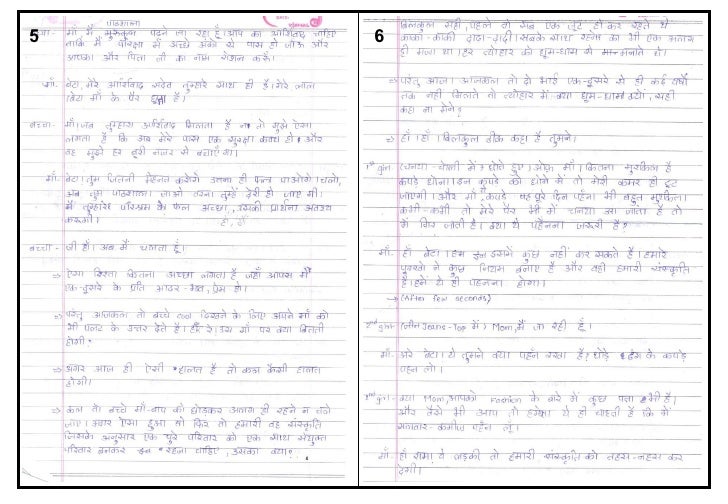 5
पाठशाला
बच्चा- माँ मैं गुरुकुल पढ़ने जा रहा हूँ। आप का आशिर्वाद चाहिए
ताकि मैं परिक्षा में अच्छे अंको से पास हो जाऊ और
आपका और पिता जी का नाम रोशन करूँ।
माँ- बेटा, मेरे आर्शिवाद सदैव तुम्हारे साथ ही है। मेरे लाल
(बेटा माँ के पैर छुता है।)
बच्चा- माँ। जब तुम्हारा आर्शिवाद मिलता है न। तो मुझे ऐसा
लगता है कि अब मेरे पास एक सुरक्षा कवच हो और
वह मुझे हर बुरी नजर से बचाएगा।
माँ- बेटा। तुम जितनी मेहनत करोगे उतना ही फल पाओगे। चलो,
अब तुम पाठशाला जाओ वरना तुम्हें देरी हो जाएगी।
मैं तुम्हारे परिश्रम के फल अच्छा, उसकी प्रार्थना अवश्य
करूंगी।
बच्चा- जी हाँ। अब मैं चलता हूँ।
⇒ ऐसा रिश्ता कितना अच्छा लगता है जहाँ आपस में
एक-दूसरे के प्रति आदर-भाव, प्रेम हो।
⇒ परंतु आजकल तो बच्चे cool दिखने के लिए अपने माँ को
भी पलट के उत्तर देते हैं। उस माँ पर क्या बितती
होगी?
⇒ अगर आज ही ऐसी हालत है तो कल कैसी हालत
होगी।
⇒ कल के बच्चे माँ-बाप को छोड़कर अलग ही रहने न चले
जाए। अगर ऐसा हुआ तो फिर तो हमारी वह संस्कृति
जिसके अनुसार एक पुरे परिवार को एक साथ संयुक्त
परिवार बनकर रहना चाहिए, उसका क्या?
6
बिलकुल सही, पहले तो सब एक जुट हो कर रहते थे
काका-काकी, दादा-दादी। सबके साथ रहने का भी एक अलग
ही मजा था। हर त्योहार को धूम-धाम से मनाते थे।
⇒ परंतु आज। आजकल तो दो भाई एक-दूसरे से ही कई वर्षों
तक नहीं मिलते तो त्योहार में क्या धूम-धाम। क्यों, सही
कहा ना मैंने?
⇒ हाँ। हाँ। बिलकुल ठीक कहा है तुमने।
1st girl- (चनया चोली में) (रोते हुए) ओफ माँ। कितना मुश्किल है
कपड़े धोना। इन कपड़े को धोने में तो मेरी कमर ही टूट
जाएगी। और माँ, कपड़े यह पूरे दिन पहनना भी बहुत मुश्किल।
कभी-कभी तो मेरे पैर भी में चनया आ जाता है तो
मैं गिर जाती हूँ। क्या ये पहनना जरूरी है?
माँ- हाँ बेटा। हम इसमें कुछ नहीं कर सकते हैं। हमारे
पूर्वजो ने कुछ नियम बनाए हैं और वही हमारी संस्कृति
है। हमें ये ही पहनना होगा।
→ (After few seconds)
2nd girl- (Jeans-Top में) Mom, मैं जा रही हूँ।
माँ- अरे बेटा। ये तुमने क्या पहन रखा है? थोड़े ढंग के कपड़े
पहन लो।
2nd girl- क्या Mom, आपको Fashion के बारे में कुछ पता भी है।
और वैसे भी आप तो हमेशा ये ही चाहती है कि मैं
सलवार-कमीज पहन लूँ।
माँ- हाँ रामा। ये लड़की तो हमारी संस्कृति को तहस-नहस कर
देगी।